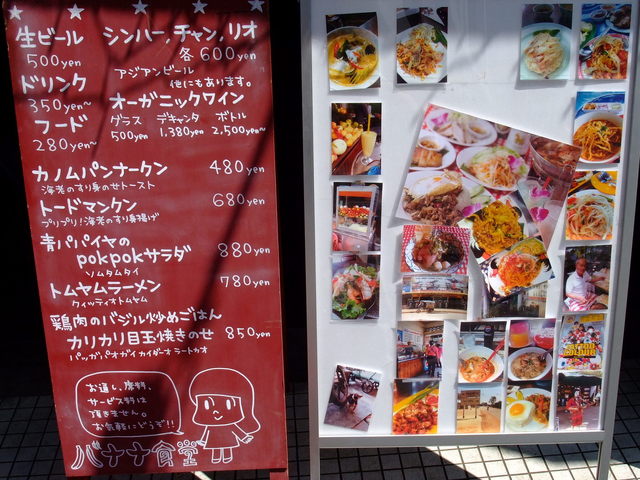 生ビール シンハー,チャン,リオ
500yen 各 600yen
アジアンビール
他にもあります。
ドリンク オーガニックワイン
350yen~ グラス デキャンタ ボトル
フード 500yen 1,380yen 2,500yen~
280yen~
カノムパンナークン 480yen
海老のすり身のせトースト
トードマンクン 680yen
プリプリ!海老のすり身揚げ
青パパイヤの
pokpokサラダ 880yen
ソムタムタイ
トムヤムラーメン 780yen
クィッティオトムヤム
鶏肉のバジル炒めごはん
カリカリ目玉焼きのせ 850yen
パッガパオガイカイダーオラートカオ
お通し、席料、
サービス料は
頂きません。
お気軽にどうぞ!!
バナナ食堂